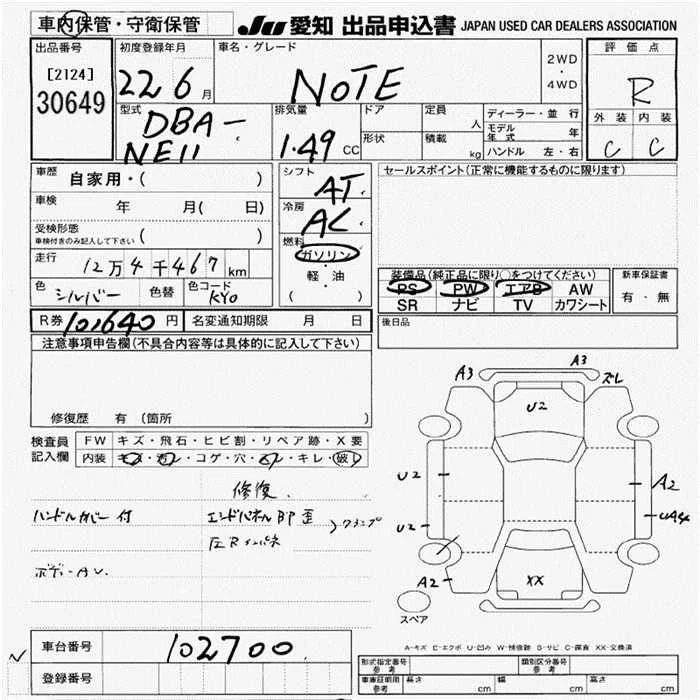 車内保管・守衛保管
JU 愛知 出品申込書 JAPAN USED CAR DEALERS ASSOCIATION
出品番号
[2124]
30649
初度登録年月
22 6 月
車名・グレード
NOTE
2WD
・
4WD
評価点
R
外装 内装
C C
型式
DBA-
NE11
排気量
1.49 CC
ドア
形状
定員
人
積載
kg
ディーラー・並行
モデル年式 年
ハンドル 左・右
車歴 自家用・( )
車検 年 月( 日)
受検形態
車検付きのみ記入して下さい ( )
走行 12万4千467 km
色 シルバー 色替 色コード KY0
シフト AT
冷房 AC
燃料
ガソリン
・
軽・油
( )
セールスポイント(正常に機能するものに限ります)
装備品(純正品に限り○をつけてください)
PS PW エアB AW
SR ナビ TV カワシート
新車保証書
有・無
R券 10,640 円 名変通知期限 月 日
後日品
注意事項申告欄(不具合内容等は具体的に記入して下さい)
修復歴 有 (箇所
検査員
記入欄
FW キズ・飛石・ヒビ割・リペア跡・X要
内装 キズ・汚レ・コゲ・穴・スレ・キレ・破レ
修復
ハンドルカバー付 エンドパネル BP 歪
左Rインパネ
A3
A3
ズレ
U2
U2
A2
U2
UA4
A2
XX
スペア
A-キズ E-エクボ U-凹み W-補修跡 S-サビ C-腐食 XX-交換済
車台番号 102700
登録番号
型式指定番号
参考
類別区分番号
参考
車庫証明用
参考
長さ cm 幅 cm 高さ cm